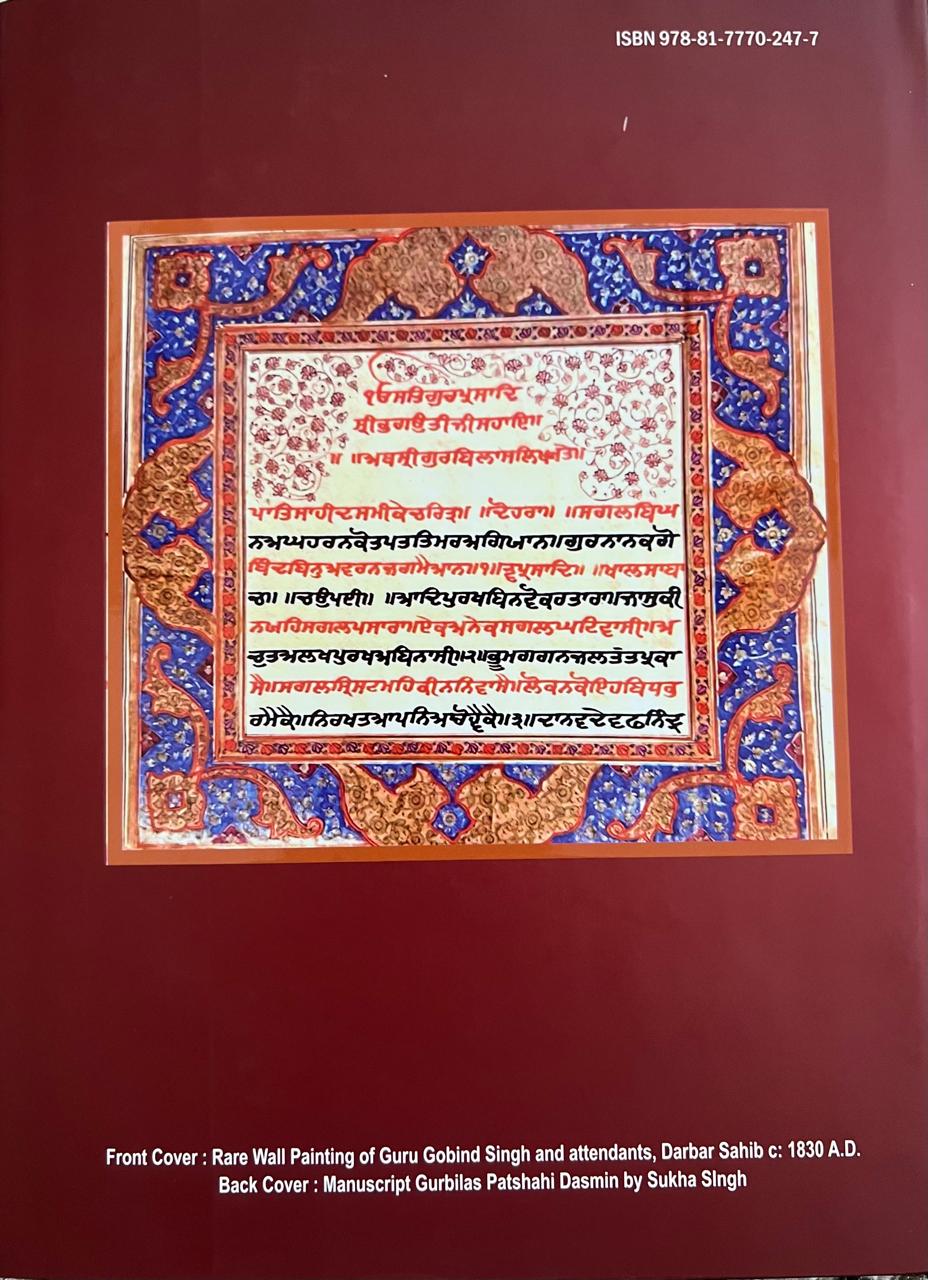 ISBN 978-81-7770-247-7
ੴਸਤਿਗੁਰਪ੍ਰਸਾਦਿ
ਸ੍ਰੀਭਗਉਤੀਜੀਸਹਾਇ॥
॥ ॥ਅਥਸ੍ਰੀਗੁਰਬਿਲਾਸਲਿਖ੍ਯਤੇ॥
ਪਾਤਿਸਾਹੀਦਸਮੀਕੇਚਰਿਤ੍ਰ॥ ॥ਦੋਹਰਾ॥ ॥ਸਗਲਬਿਘ
ਨਅਘਹਰਨਕੋਤਪਤਤਿਮਰਅਗਿਆਨ॥ਗੁਰਨਾਨਕਗੋ
ਬਿੰਦਬਿਨੁਅਵਰਨਜਗਮੈਆਨ॥੧॥ਤ੍ਵਪ੍ਰਸਾਦਿ॥ ॥ਖਾਲਸਾਬਾ
ਚ॥ ॥ਚਉਪਈ॥ ॥ਆਦਿਪੁਰਖਬਿਨਵੋਕਰਤਾਰਾ॥ਜਾਸੁਕੀ
ਨਯਹਿਸਗਲਪਸਾਰਾ॥ਏਕਅਨੇਕਸਗਲਘਟਿਵਾਸੀ॥ਅ
ਚੁਤਅਲਖਪੁਰਖਅਬਿਨਾਸੀ॥੨॥ਭੂਮਗਗਨਜਲਤੰਤਪ੍ਰਕਾ
ਸੈ॥ਸਗਲਸ੍ਰਿਸਟਮਹਿਕੀਨਨਿਵਾਸੈ॥ਲੋਕਨਕੋਇਹਬਿਧਭ
ਰਮੈਕੈ॥ਨਿਰਖਤਆਪਨਿਅਚੋਹ੍ਵੈਕੈ॥੩॥ਦਾਨਵਦੇਵਫਨਿੰਦ੍ਰ
Front Cover : Rare Wall Painting of Guru Gobind Singh and attendants, Darbar Sahib c: 1830 A.D.
Back Cover : Manuscript Gurbilas Patshahi Dasmin by Sukha SIngh